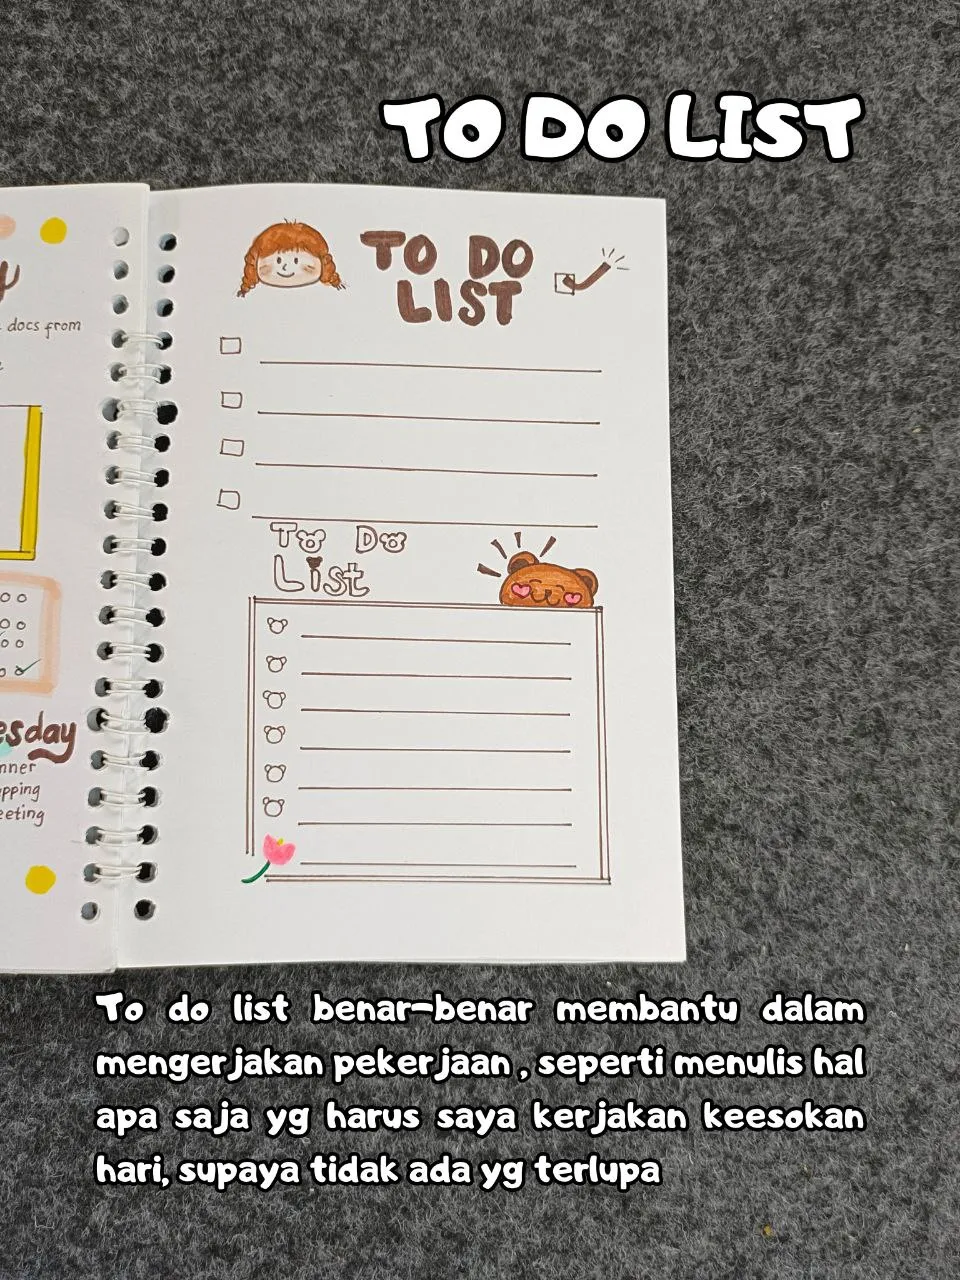 TO DO LIST
docs from
TO DO
LIST
To Do
List
esday
nner
pping
eeting
To do list benar-benar membantu dalam
mengerjakan pekerjaan , seperti menulis hal
apa saja yg harus saya kerjakan keesokan
hari, supaya tidak ada yg terlupa